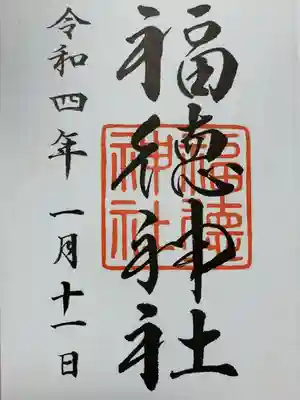 福徳神社
福徳
神社
令和四年 一月十一日